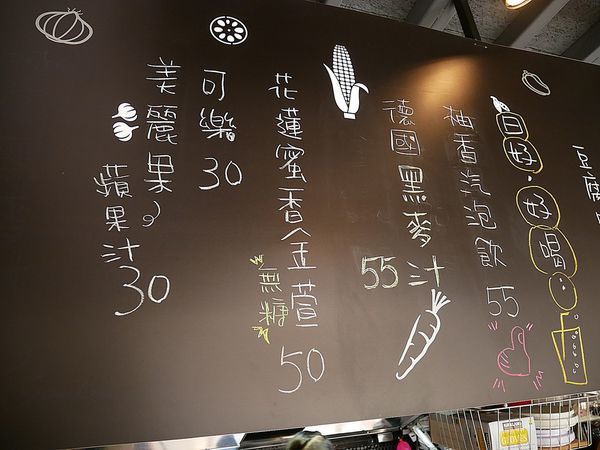 豆腐
日好·好喝
柚香汽泡飲 55
德國黑麥汁 55
花蓮蜜香金萱 50
無糖
可樂 30
美麗果
蘋果汁 30
GLOVES